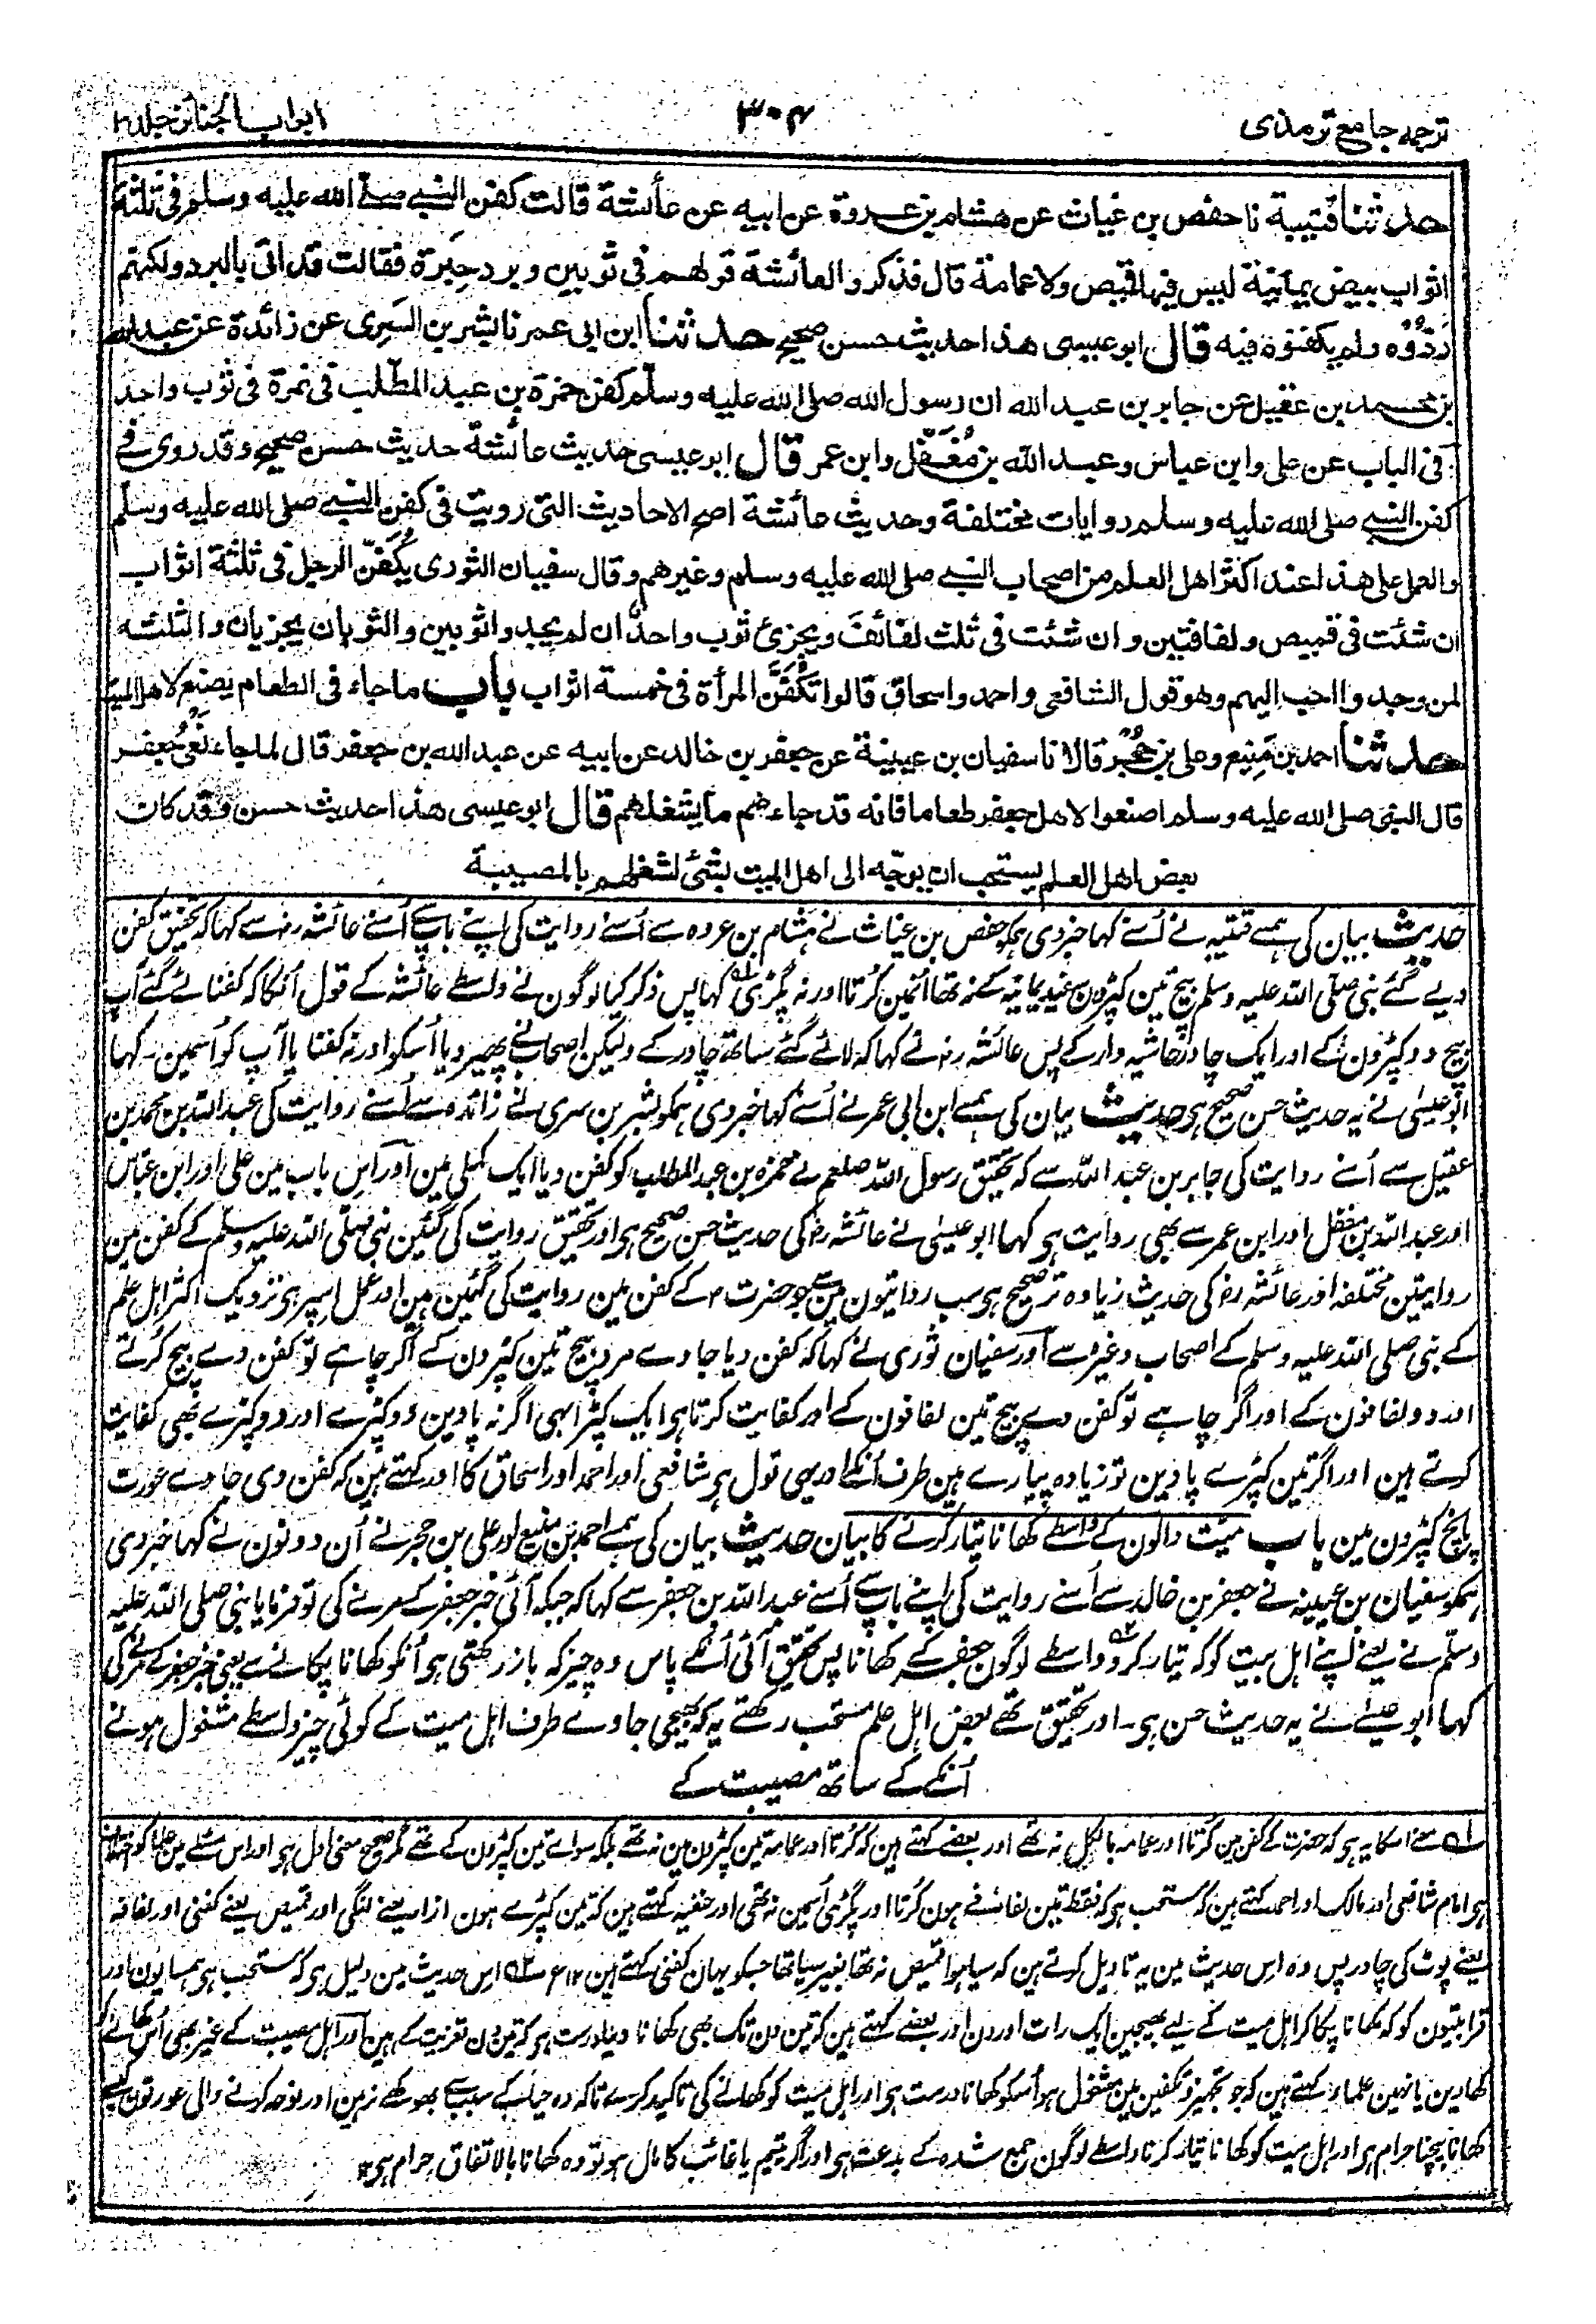 ترجمہ جامع ترمذی
۳۰۴
ابواب الجنائز جلد۱
حدثنا قتیبة نا حفص بن غیاث عن هشام بن عروة عن ابیه عن عائشة قالت کفن النبی صلی الله علیه وسلم فی ثلثة
اثواب بیض یمانیة لیس فیها قمیص ولا عمامة قال فذکروا لعائشة قولهم فی ثوبین وبرد حِبَرة فقالت قد اتی بالبرد ولکنهم
رَدُّوه ولم یکفنوه فیه قال ابو عیسی هذا حدیث حسن صحیح حدثنا ابن ابی عمر نا بشر بن السَرِی عن زائدة عن عبد الله
بن محمد بن عقیل عن جابر بن عبد الله ان رسول الله صلی الله علیه وسلم کفن حمزة بن عبد المطّلب فی نمرة فی ثوب واحد
فی الباب عن علی وابن عباس وعبد الله بن مُغَفَّل وابن عمر قال ابو عیسی حدیث عائشة حدیث حسن صحیح وقد روی فی
کفن النبی صلی الله علیه وسلم روایات مختلفة وحدیث عائشة اصح الاحادیث التی رویت فی کفن النبی صلی الله علیه وسلم
والعمل علی هذا عند اکثر اهل العلم من اصحاب النبی صلی الله علیه وسلم وغیرهم وقال سفیان الثوری یُکَفَّن الرجل فی ثلثة اثواب
ان شئت فی قمیص ولفافتین وان شئت فی ثلث لفائف ویجزئ ثوب واحد ان لم یجدوا ثوبین والثوبان یجزیان والثلثه
لمن وجد وا احب الیهم وهو قول الشافعی واحمد واسحاق قالوا تُکَفَّن المرأة فی خمسة اثواب باب ما جاء فی الطعام یصنع لاهل المیت
حدثنا احمد بن مَنِیع وعلی بن حُجْر قالا نا سفیان بن عیینة عن جعفر بن خالد عن ابیه عن عبد الله بن جعفر قال لما جاء نَعْیُ جعفر
قال النبی صلی الله علیه وسلم اصنعوا لاهل جعفر طعاما فانه قد جاءهم ما یشغلهم قال ابو عیسی هذا حدیث حسن وقد کان
بعض اهل العلم یستحب ان یوجّه الی اهل المیت بشئ لشغلهم بالمصیبة
حدیث بیان کی ہمسے قتیبہ نے اُسنے کہا خبر دی ہمکو حفص بن غیاث نے ہشام بن عروہ سے اُسنے روایت کی اپنے باپسے اُسنے عائشہ رضہ سے کہا کہ تحقیق کفن
دیے گئے نبی صلّی اللہ علیہ وسلم بیچ تین کپڑون سفید یمانیہ کے نہ تھا اُنمین کُرتا اور نہ پگڑی کہا پس ذکر کیا لوگون نے واسطے عائشہ کے قول اُنکا کہ کفنائے گئے آپ
بیچ دو کپڑون کے اور ایک چادر حاشیہ دار کے پس عائشہ رضہ نے کہا کہ لائے گئے ساتھ چادر کے ولیکن اصحاب نے پھیر دیا اُسکو اور نہ کفنایا آپ کو اُسمین۔ کہا
ابو عیسیٰ نے یہ حدیث حسن صحیح ہی حدیث بیان کی ہمسے ابن ابی عمر نے اُسنے کہا خبر دی ہمکو بشر بن سری نے زائدہ سے اُسنے روایت کی عبد اللہ بن محمد بن
عقیل سے اُسنے روایت کی جابر بن عبد اللہ سے کہ تحقیق رسول اللہ صلعم نے حمزہ بن عبد المطلب کو کفن دیا ایک کملی مین اور اس باب مین علی اور ابن عباس
اور عبد اللہ بن مغفل اور ابن عمر سے بھی روایت ہی کہا ابو عیسیٰ نے عائشہ رضہ کی حدیث حسن صحیح ہی اور تحقیق روایت کی گئین نبی صلّی اللہ علیہ وسلّم کے کفن مین
روایتین مختلفہ اور عائشہ رضہ کی حدیث زیادہ تر صحیح ہی سب روایتون مین سے جو حضرت ؐ کے کفن مین روایت کی گئین ہین اور عمل اسپر ہی نزدیک اکثر اہل علم
کے نبی صلی اللہ علیہ وسلم کے اصحاب وغیرہ سے اور سفیان ثوری نے کہا کہ کفن دیا جاوے مرد بیچ تین کپڑون کے اگر چاہے تو کفن دے بیچ کُرتے
اور دو لفافون کے اور اگر چاہے تو کفن دے بیچ تین لفافون کے اور کفایت کرتا ہی ایک کپڑا بھی اگر نہ پاوین دو کپڑے اور دو کپڑے بھی کفایت
کرتے ہین اور اگر تین کپڑے پاوین تو زیادہ پیارے ہین طرف اُنکے اور یہی قول ہی شافعی اور احمد اور اسحاق کا اور کہتے ہین کہ کفن دی جاوے عورت
پانچ کپڑون مین باب میّت والون کے واسطے کھانا تیار کرنے کا بیان حدیث بیان کی ہمسے احمد بن منیع اور علی بن حجر نے اُن دونون نے کہا خبر دی
ہمکو سفیان بن عیینہ نے جعفر بن خالد سے اُسنے روایت کی اپنے باپسے اُسنے عبد اللہ بن جعفر سے کہا کہ جبکہ آئی خبر جعفر کے مرنے کی تو فرمایا نبی صلی اللہ علیہ
وسلّم نے یعنے اپنے اہل بیت کو کہ تیار کرو واسطے لوگون جعفر کے کھانا پس تحقیق آئی اُنکے پاس وہ چیز کہ باز رکھتی ہی اُنکو کھانا پکانے سے یعنی خبر جعفر کے مرنے کی
کہا ابو عیسےٰ نے یہ حدیث حسن ہی۔ اور تحقیق تھے بعض اہل علم مستحب رکھتے یہ کہ بھیجی جاوے طرف اہل میت کے کوئی چیز واسطے مشغول ہونے
اُنکے کے ساتھ مصیبت کے
ف۱ معنے اسکا یہ ہی کہ حضرت کے کفن مین کُرتا اور عمامہ بالکل نہ تھے اور بعضے کہتے ہین کہ کُرتا اور عمامہ تین کپڑون مین نہ تھے بلکہ سواے تین کپڑون کے تھے مگر صحیح معنی اول ہی اور اس مسئلے مین علما کو اختلاف
ہی امام شافعی اور مالک اور احمد کہتے ہین کہ مستحب ہی کہ فقط تین لفافے ہون کُرتا اور پگڑی اُسمین نہ تھی اور حنفیہ کہتے ہین کہ تین کپڑے ہون ازار یعنے لنگی اور قمیص یعنے کفنی اور لفافہ
یعنے پوٹ کی چادر پس وہ اس حدیث مین یہ تاویل کرتے ہین کہ سیا ہوا قمیص نہ تھا بغیر سیا تھا جسکو یہان کفنی کہتے ہین ۱۲ ع ف۲ اس حدیث مین دلیل ہی کہ مستحب ہی ہمسایون اور
قرابتیون کو کہ کھانا پکا کر اہل میت کے لیے بھیجین ایک رات اور دن اور بعضے کہتے ہین کہ تین دن تک بھی کھانا دینا درست ہی کہ تین دن تعزیت کے ہین اور اہل مصیبت کے غیر بھی اُس کھانے کو
کھاوین یا نہین علماء کہتے ہین کہ جو تجہیز و تکفین مین مشغول ہو اُسکو کھانا درست ہی اور اہل میت کو کھلانے کی تاکید کرے تاکہ وہ حیا کے سبب سے بھوکے نرہین اور نوحہ کرنے والی عورتون کو
کھانا بیچنا حرام ہی اور اہل میت کو کھانا تیار کرنا واسطے لوگون جمع شدہ کے بدعت ہی اور اگر یتیم یا غائب کا مال ہو تو وہ کھانا بالاتفاق حرام ہی